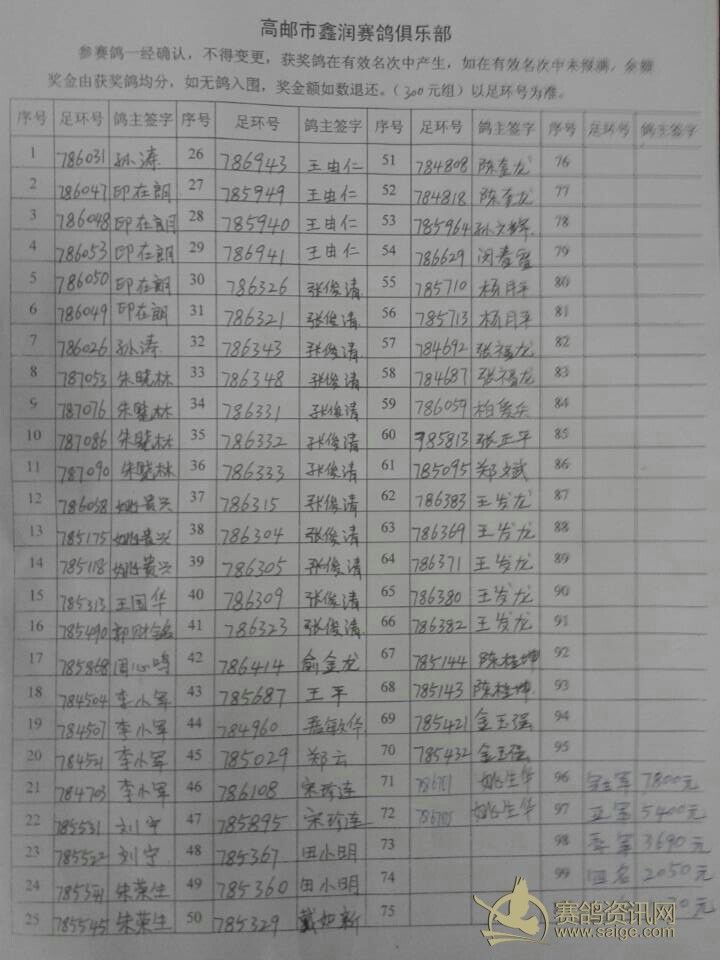 高邮市鑫润赛鸽俱乐部
参赛鸽一经确认，不得变更，获奖鸽在有效名次中产生，如在有效名次中未报满，余额
奖金由获奖鸽均分，如无鸽入围，奖金额如数退还。（300元组）以足环号为准。
序号 足环号 鸽主签字 序号 足环号 鸽主签字 序号 足环号 鸽主签字 序号 足环号 鸽主签字
1 786031 孙涛 26 786943 王由仁 51 784808 陈奎龙 76
2 786047 印在朗 27 785949 王由仁 52 784818 陈奎龙 77
3 786048 印在朗 28 785940 王由仁 53 785964 孙文辉 78
4 786053 印在朗 29 786941 王由仁 54 786629 79
5 786050 印在朗 30 786326 张俊清 55 785710 杨月平 80
6 786049 印在朗 31 786321 张俊清 56 785713 杨月平 81
7 786026 孙涛 32 786343 张俊清 57 784692 张福龙 82
8 787053 朱晓林 33 786348 张俊清 58 784687 张福龙 83
9 787076 朱晓林 34 786331 张俊清 59 786059 84
10 787086 朱晓林 35 786332 张俊清 60 785813 张正平 85
11 787090 朱晓林 36 786333 张俊清 61 785095 郑斌 86
12 786058 姚贵兴 37 786315 张俊清 62 786383 王发龙 87
13 785175 姚贵兴 38 786304 张俊清 63 786369 王发龙 88
14 785118 姚贵兴 39 786305 张俊清 64 786371 王发龙 89
15 785313 王国华 40 786309 张俊清 65 786380 王发龙 90
16 785490 41 786323 张俊清 66 786382 王发龙 91
17 785868 周心鸣 42 786414 俞金龙 67 785144 陈桂坤 92
18 784504 李小军 43 785687 王平 68 785143 陈桂坤 93
19 784507 李小军 44 784960 69 785421 金玉强 94
20 784521 李小军 45 785029 郑云 70 785432 金玉强 95
21 784703 李小军 46 786108 宋珍连 71 786701 姚生华 96 冠军 7800元
22 785531 刘宁 47 785895 宋珍连 72 姚生华 97 亚军 5400元
23 785522 刘宁 48 785367 田小明 73 98 季军 3690元
24 朱荣生 49 785360 田小明 74 99 四名 2050元
25 785545 朱荣生 50 785329 戴如新 75
赛鸽资讯网
www.saigc.com